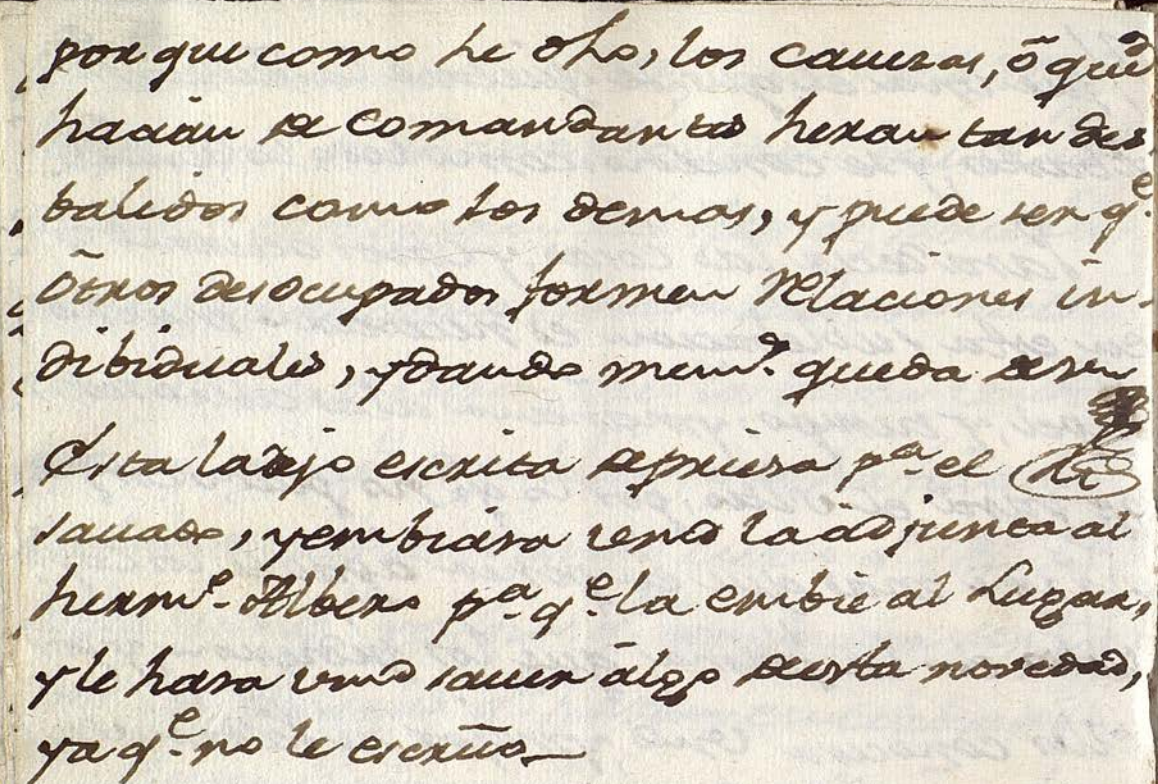 porque como he dho, los caueras, õ que
hacian de comandantes heran tan des
balidos como los demas, y puede ser q.e
õtros desocupados formen Relaciones in-
dibiduales, y dando mem.s queda de vm
Esta la dejo escrita de priesa p.a el
sauado, y embiara vmd la adjunta al
herm.o Albero p.a q.e la embie al Lugar,
y le hara vmd sauer ãlgo de esta novedad,
ya q.e no le escriuo